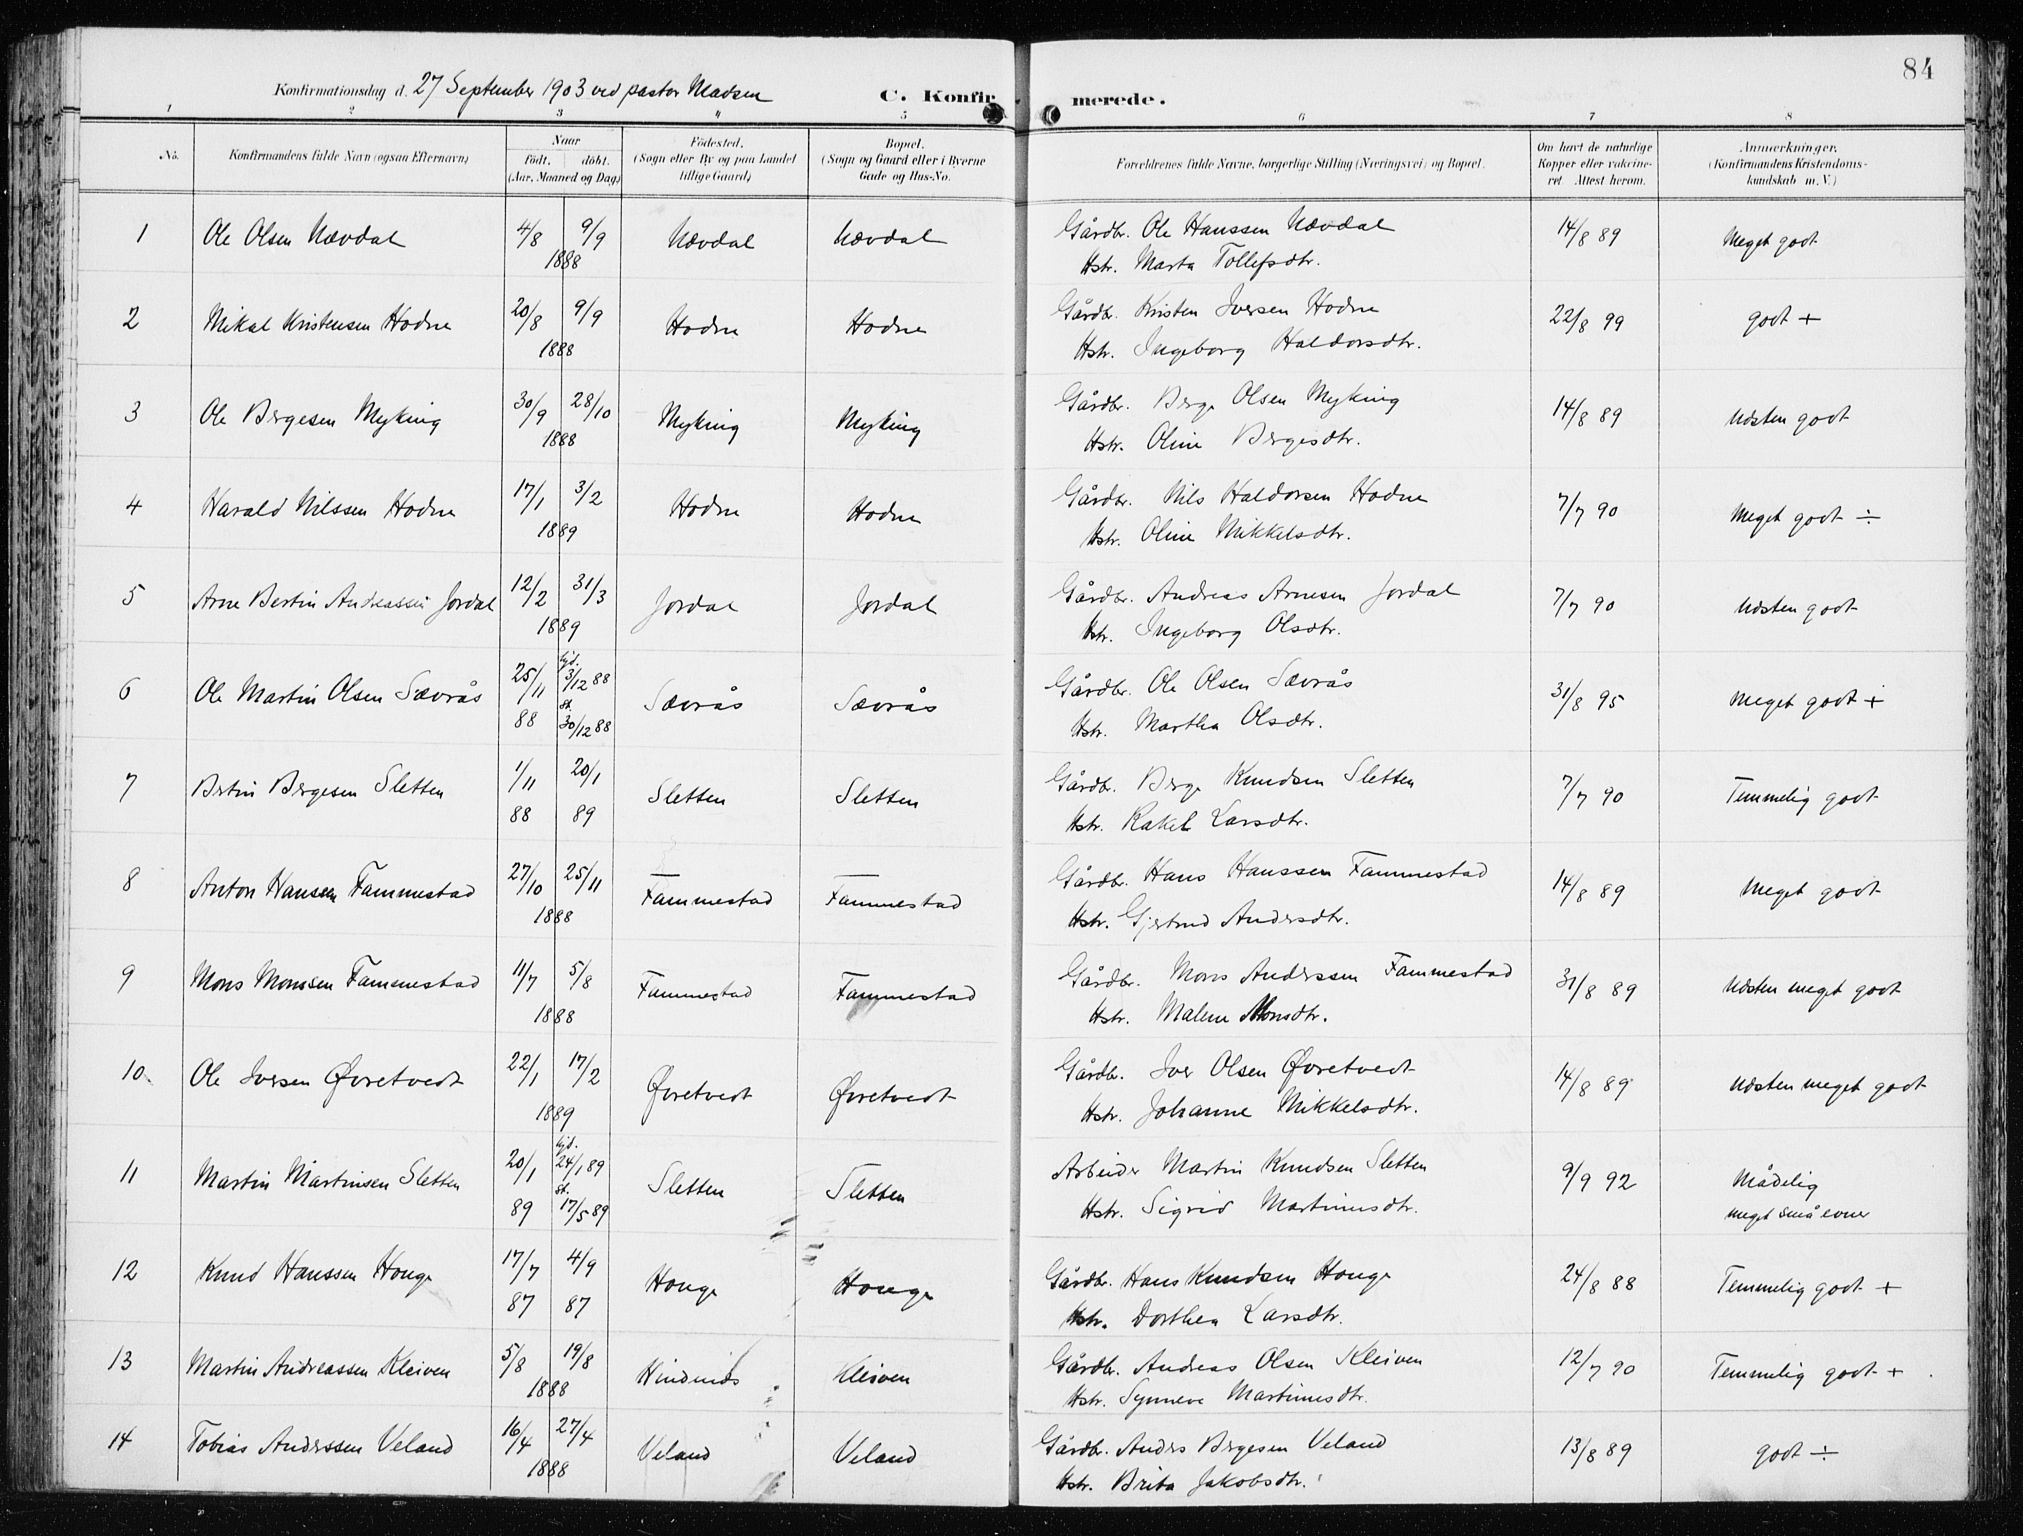 84
Konfirmationsdag d. 27 September 1903 ved pastor Madsen
C. Konfirmerede.
1 2 3 4 5 6 7 8
No. Konfirmandens fulde Navn (ogsaa Efternavn) Naar födt. döbt. (Aar, Maaned og Dag) Födested. (Sogn eller By og paa Landet tillige Gaard) Bopæl. (Sogn og Gaard eller i Byerne Gade og Hus-No. Forældrenes fulde Navne, borgerlige Stilling (Næringsvei) og Bopæl. Om havt de naturlige Kopper eller vakcineret. Attest herom. Anmærkninger. (Konfirmandens Kristendomskundskab m. V.)
1 Ole Olsen Nævdal 4/8 9/9 1888 Nævdal Nævdal Gårdbr. Ole Hanssen Nævdal 14/8 89 Meget godt
Hstr. Marta Tollefsdtr.
2 Mikal Kristensen Hodne 20/8 9/9 1888 Hodne Hodne Gårdbr. Kristen Iversen Hodne 22/8 99 godt +
Hstr. Ingeborg Haldorsdtr.
3 Ole Bergesen Myking 30/9 28/10 1888 Myking Myking Gårdbr. Berge Olsen Myking 14/8 89 Næsten godt
Hstr. Oline Bergesdtr.
4 Harald Nilssen Hodne 17/1 3/2 1889 Hodne Hodne Gårdbr. Nils Haldorsen Hodne 7/7 90 Meget godt ÷
Hstr. Oline Mikkelsdtr.
5 Arne Bertin Andreassen Jordal 12/2 31/3 1889 Jordal Jordal Gårdbr. Andreas Arnesen Jordal 7/7 90 Næsten godt
Hstr. Ingeborg Olsdtr.
6 Ole Martin Olsen Sævrås 25/11 88 hjd. 3/12 88 st. 30/12 88 Sævrås Sævrås Gårdbr. Ole Olsen Sævrås 31/8 95 Meget godt +
Hstr. Martha Olsdtr.
7 Bertin Bergesen Sletten 1/11 88 20/1 89 Sletten Sletten Gårdbr. Berge Knudsen Sletten 7/7 90 Temmelig godt
Hstr. Rakel Larsdtr.
8 Anton Hansen Fammestad 27/10 25/11 1888 Fammestad Fammestad Gårdbr. Hans Hanssen Fammestad 14/8 89 Meget godt
Hstr. Gjertrud Andersdtr.
9 Mons Monssen Fammestad 11/7 5/8 1888 Fammestad Fammestad Gårdbr. Mons Anderssen Fammestad 31/8 89 Næsten meget godt
Hstr. Malene Monsdtr.
10. Ole Iversen Øvretvedt 22/1 17/2 1889 Øvretvedt Øvretvedt Gårdbr. Iver Olsen Øvretvedt 14/8 89 Næsten meget godt
Hstr. Johanne Mikkelsdtr.
11 Martin Martinsen Sletten 20/1 89 hjd. 24/1 89 st. 17/5 89 Sletten Sletten Arbeider Martin Knudsen Sletten 9/9 92 Mådelig
Hstr. Sigrid Martinusdtr. meget små evner
12 Knud Hanssen Houge 17/7 87 4/9 87 Houge Houge Gårdbr. Hans Knudsen Houge 24/8 88 Temmelig godt +
Hstr. Dorthea Larsdtr.
13 Martin Andreassen Kleiven 5/8 19/8 1888 Hindenes Kleiven Gårdbr. Andreas Olsen Kleiven 12/7 90 Temmelig godt +
Hstr. Synneve Martinusdtr.
14 Tobias Anderssen Veland 16/4 27/4 1888 Veland Veland Gårdbr. Anders Bergesen Veland 13/8 89 godt ÷
Hstr. Brita Jakobsdtr.